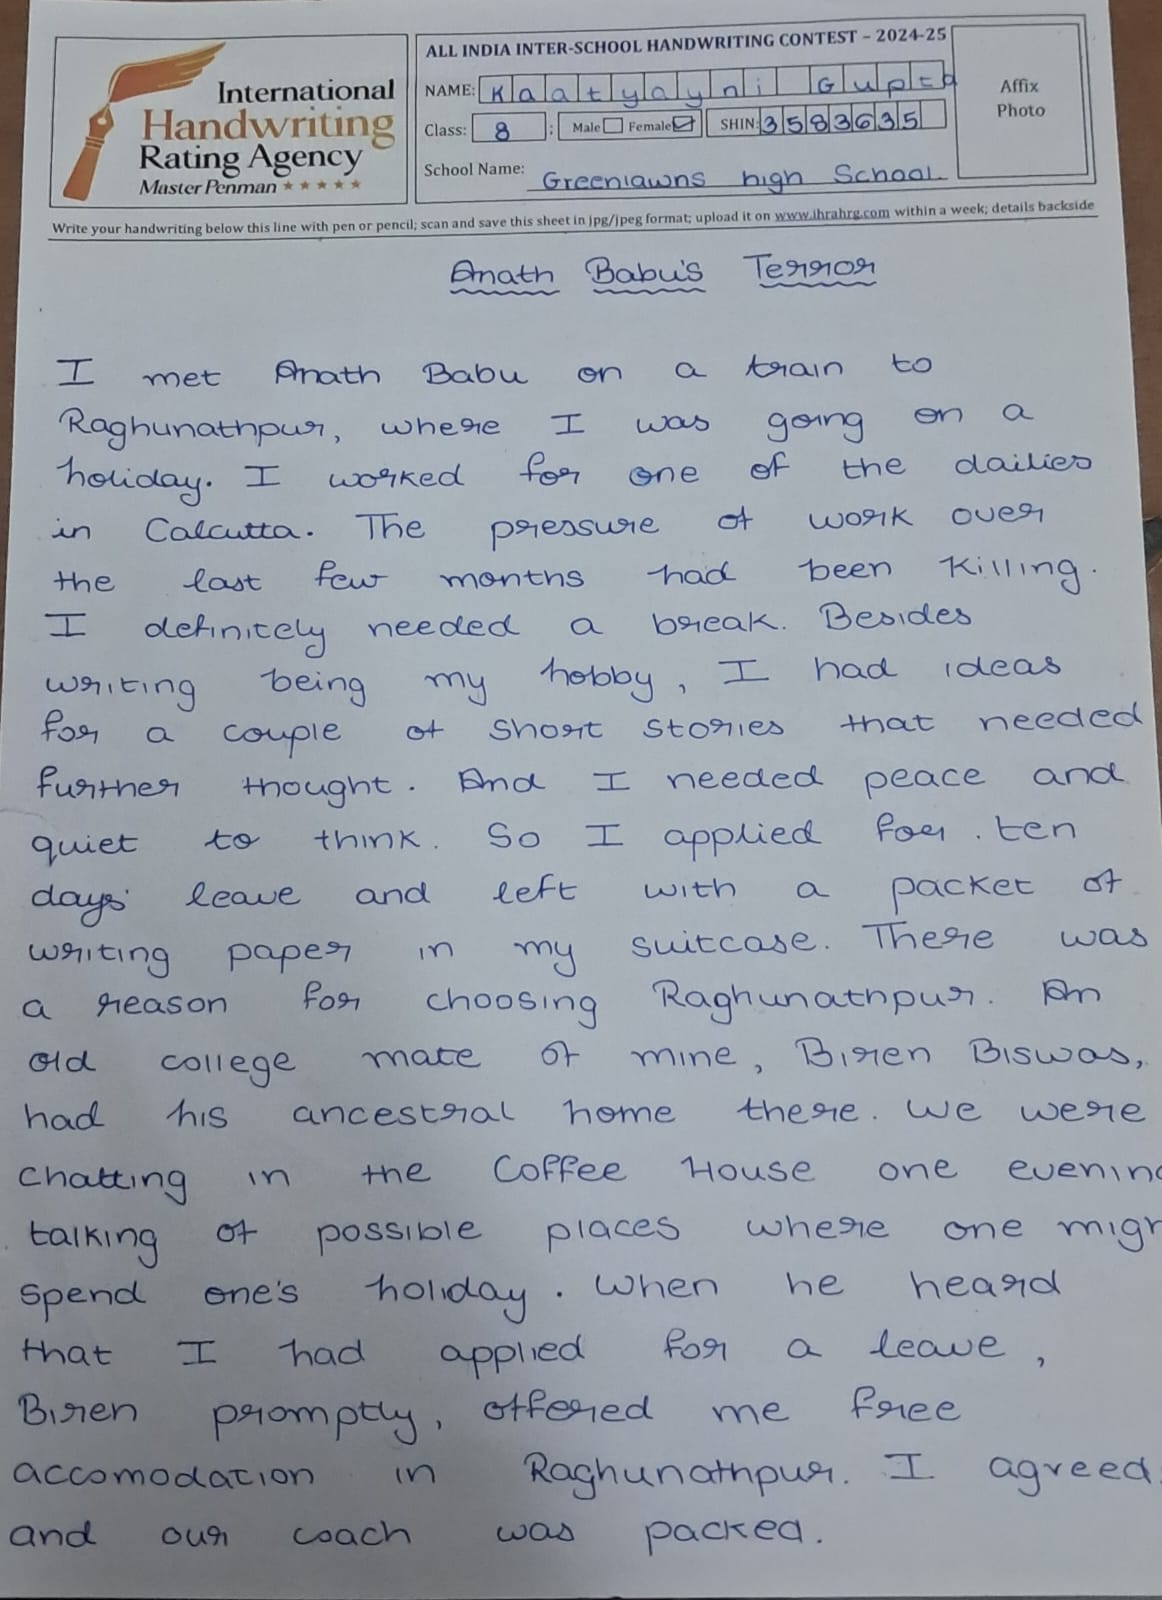 International
Handwriting
Rating Agency
Master Penman ★★★★★
ALL INDIA INTER-SCHOOL HANDWRITING CONTEST – 2024-25
NAME: Kaatyayni Gupta
Class: 8 : Male Female SHIN: 3583635
School Name: Greenlawns high School
Affix
Photo
Write your handwriting below this line with pen or pencil; scan and save this sheet in jpg/jpeg format; upload it on www.ihrahrg.com within a week; details backside
Anath Babu's Terror
I met Anath Babu on a train to
Raghunathpur, where I was going on a
holiday. I worked for one of the dailies
in Calcutta. The pressure of work over
the last few months had been killing.
I definitely needed a break. Besides
writing being my hobby, I had ideas
for a couple of short stories that needed
further thought. And I needed peace and
quiet to think. So I applied for . ten
days' leave and left with a packet of
writing paper in my suitcase. There was
a reason for choosing Raghunathpur. An
old college mate of mine, Biren Biswas,
had his ancestral home there. We were
chatting in the Coffee House one evenin
talking of possible places where one migh
spend one's holiday. When he heard
that I had applied for a leave,
Biren promptly, offered me free
accomodation in Raghunathpur. I agreed
and our coach was packed.